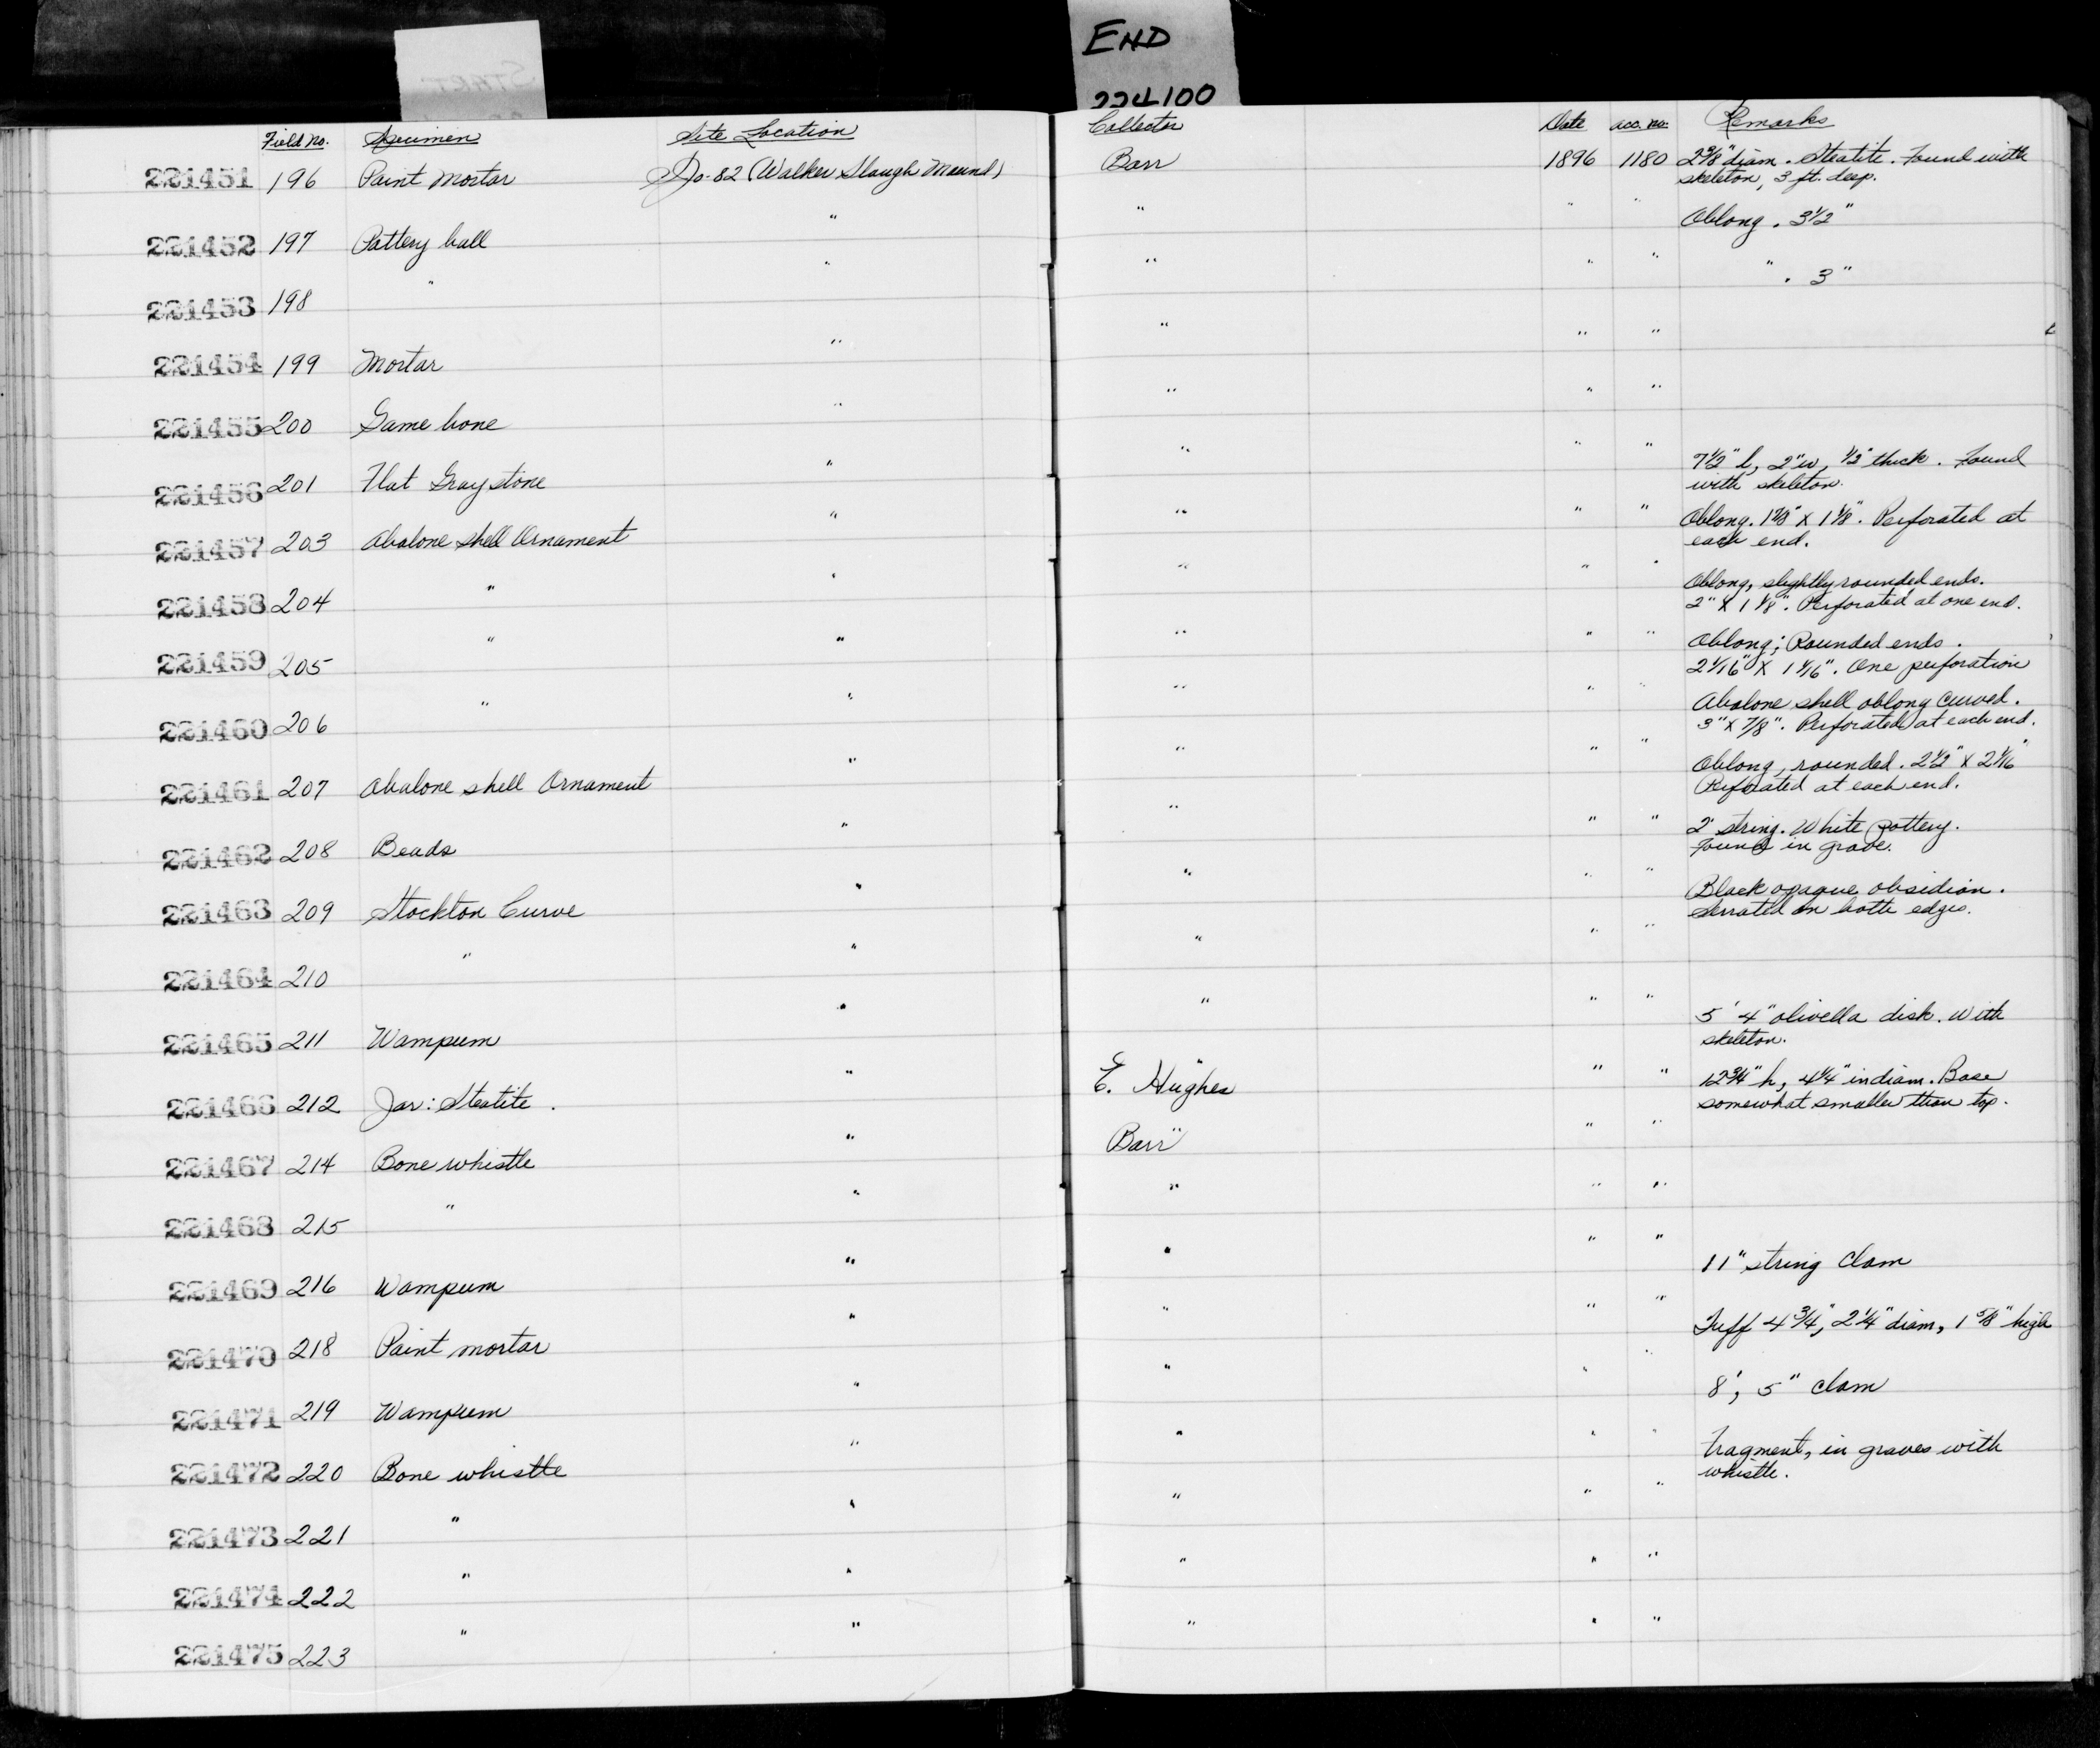 START
END
224100
Field No. Specimen Site Location Collector Date acc. no. Remarks
221451 196 Paint Mortar SJo-82 (Walker Slough Mound) Barr 1896 1180 2 5/8" diam. Steatite. Found with
skeleton, 3 ft. deep.
221452 197 Pottery ball " " " " Oblong. 3 1/2"
221453 198 " " " " " " . 3"
221454 199 Mortar " " " "
221455 200 Game bone " " " "
221456 201 Flat Gray stone " " " " 7 1/2" l, 2" w, 1/2" thick. Found
with skeleton.
221457 203 Abalone shell Ornament " " " " Oblong. x 1 1/8". Perforated at
each end.
221458 204 " " " " " Oblong, slightly rounded ends.
2" x 1 1/8". Perforated at one end.
221459 205 " " " " " Oblong; Rounded ends.
2 1/16" x 1 1/16". One perforation
221460 206 " " " " " Abalone shell oblong curved.
3" x 7/8". Perforated at each end.
221461 207 Abalone shell Ornament " " " " Oblong, rounded. 2 1/2" x 2 1/16"
Perforated at each end.
221462 208 Beads " " " " 2' string. White pottery.
Found in grave.
221463 209 Stockton Curve " " " " Black opaque obsidian.
Serrated on both edges.
221464 210 " " " " "
221465 211 Wampum " " " " 5' 4" olivella disk. With
skeleton.
221466 212 Jar: Steatite. " E. Hughes " " 12 3/4" h, 4 1/4" in diam. Base
somewhat smaller than top.
221467 214 Bone whistle " Barr " "
221468 215 " " " " "
221469 216 Wampum " " " " 11" string clam
221470 218 Paint mortar " " " " Tuff 4 3/4", 2 1/4" diam, 1 5/8" high
221471 219 Wampum " " " " 8', 5" clam
221472 220 Bone whistle " " " " Fragment, in graves with
whistle.
221473 221 " " " " "
221474 222 " " " " "
221475 223 " " " " "